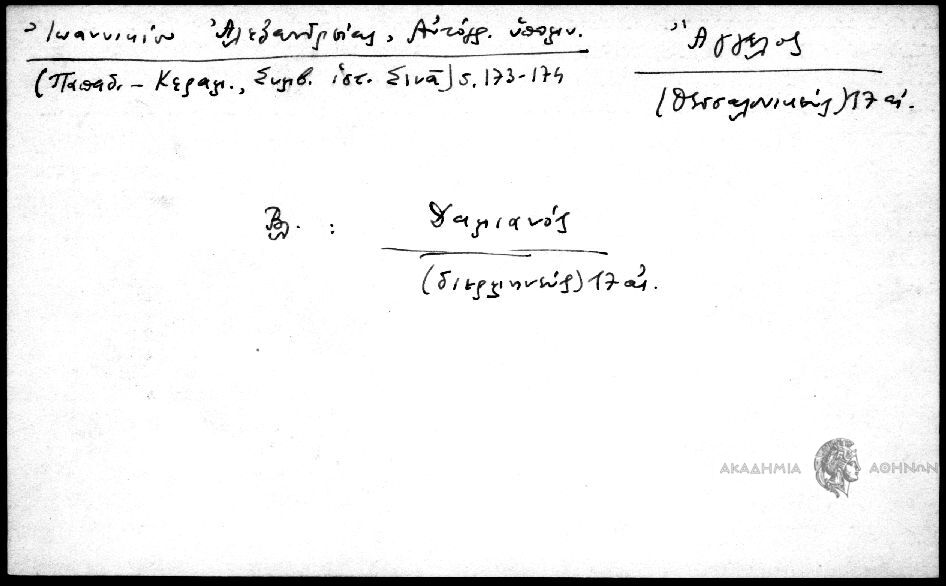 Ἰωαννικίου Ἀλεξανδρείας, Αὐτόγρ. ὑπόμν.
(Παπαδ. - Κεραμ., Συμβ. ἱστ. Σινᾶ) σ. 173-174
Ἄγγελος
(Θεσσαλονικεύς) 17 αἰ.
Βλ. : Δαμιανός
(διερμηνεύς) 17 αἰ.
ΑΚΑΔΗΜΙΑ ΑΘΗΝΩΝ